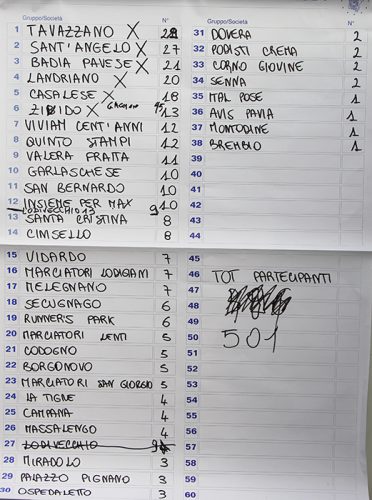 Gruppo/Società N°
1 TAVAZZANO X 28
2 SANT'ANGELO X 27
3 BADIA PAVESE X 21
4 LANDRIANO X 20
5 CASALESE X 18
6 ZIBIDO X 13
7 VIVIAM CENT'ANNI 12
8 QUINTO STAMPI 12
9 VALERA FRATTA 11
10 GARLASCHESE 10
11 SAN BERNARDO 10
12 INSIEME PER MAX 10
LODIVECCHIO 13 9
13 SANTA CRISTINA 8
14 CIMSELLO 8
15 VIDARDO 7
16 MARCIATORI LODIGIANI 7
17 MELEGNANO 7
18 SECUGNAGO 6
19 RUNNER'S PARK 6
20 MARCIATORI LENTI 5
21 CODOGNO 5
22 BORGONOVO 5
23 MARCIATORI SAN GIORGIO 5
24 LA TIGRE 4
25 CAMPANA 4
26 MASSALENGO 4
27 LODIVECCHIO
28 MIRADOLO 3
29 PALAZZO PIGNANO 3
30 OSPEDALETTO 3
Gruppo/Società N°
31 DOVERA 2
32 PODISTI CREMA 2
33 CORNO GIOVINE 2
34 SENNA 2
35 MAL POSE 1
36 AVIS PAVIA 1
37 MONTODINE 1
38 BREMBIO 1
39
40
41
42
43
44
45
46 TOT PARTECIPANTI
47
48
49
50 501
51
52
53
54
55
56
57
58
59
60